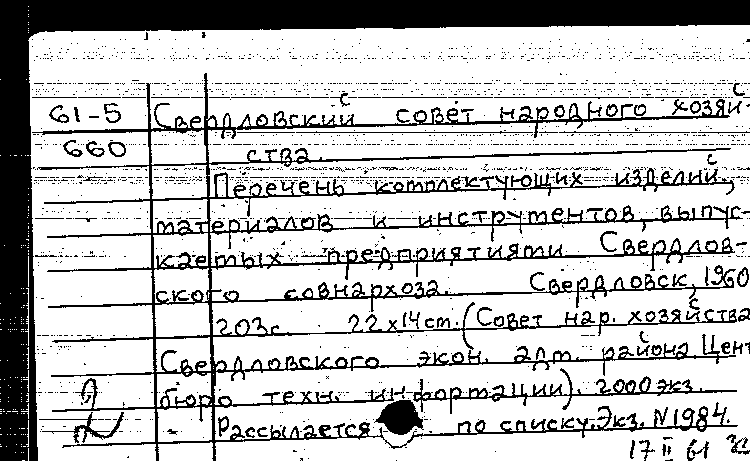 61-5 Свердловский совет народного хозяй-
660 ства.
Перечень комплектующих изделий,
материалов и инструментов, выпус-
каемых предприятиями Свердлов-
ского совнархоза. Свердловск, 1960
203с. 22х14ст. (Совет нар. хозяйства
Свердловского экон. адм. района. Цент
бюро техн. информации). 2000 экз.
2 Рассылается по списку. Экз. N1984.
17 II 61